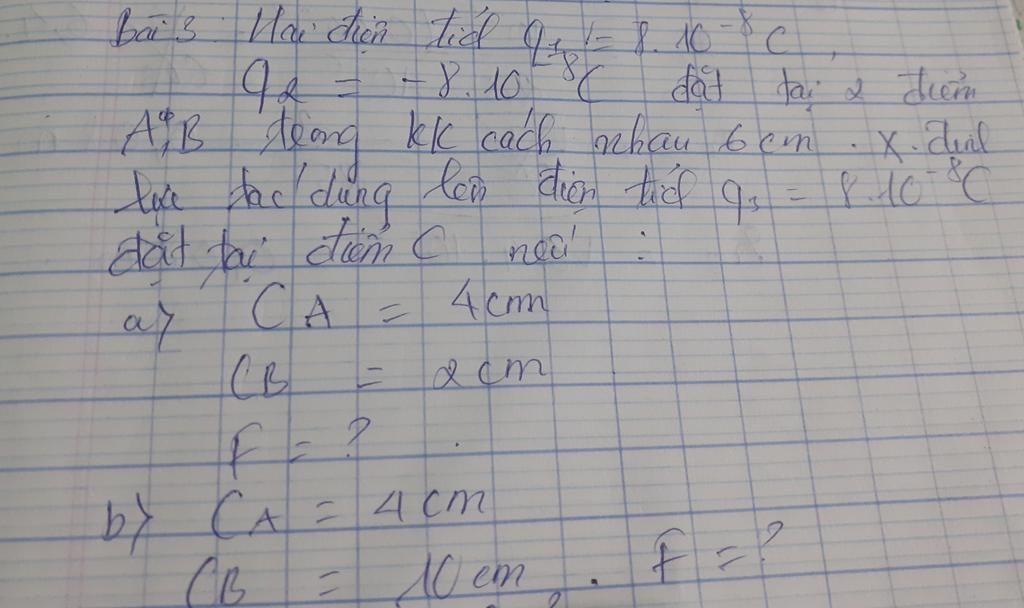 Bài 3 Hai điện tích q₁ = 8.10⁻⁸ C,
q₂ = -8.10⁻⁸ C đặt tại 2 điểm
A, B trong kk cách nhau 6 cm. X. định
lực tác dụng lên điện tích q₃ = 8.10⁻⁸ C
đặt tại điểm C nếu :
a) CA = 4 cm
CB = 2 cm
F = ?
b) CA = 4 cm
CB = 10 cm. F = ?